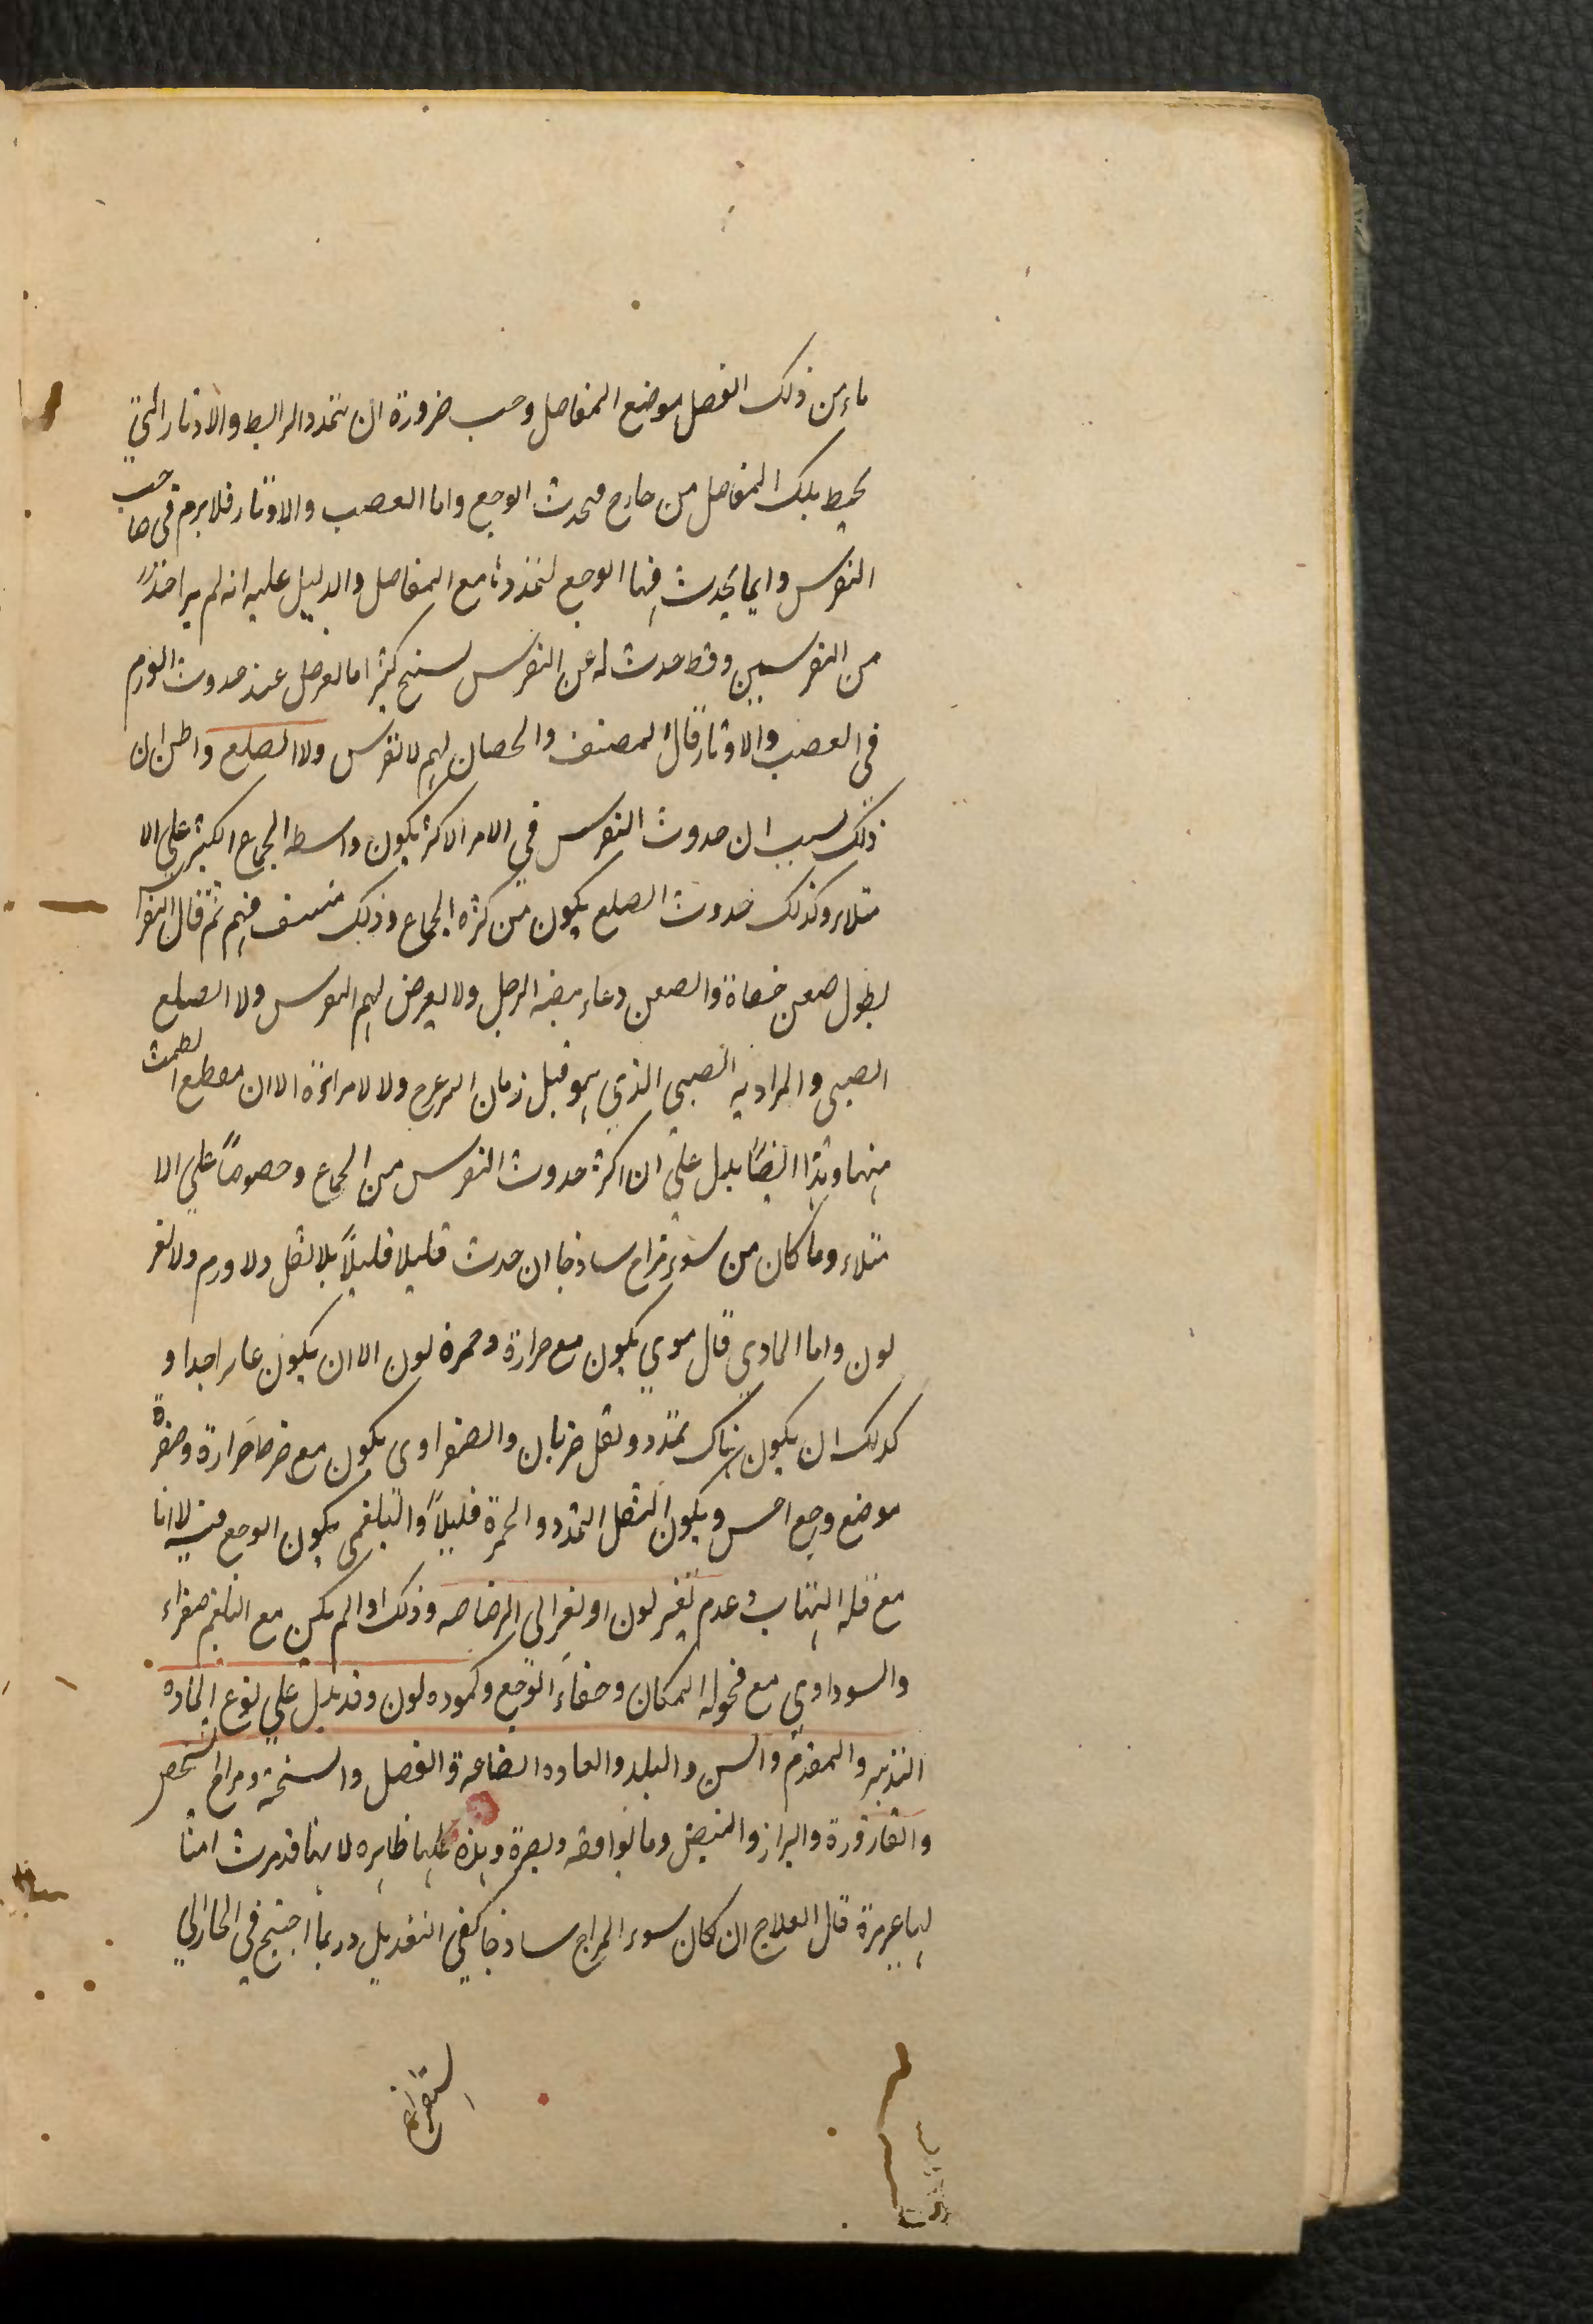 ماء من ذلك الفصل موضع المفاصل وجب ضرورة ان يتمدد الرابط والاوتار التي
يحيط بتلك المفاصل من خارج فيحدث الوجع واما العصب والاوتار فلا يرم في صاحب
النقرس وانما يحدث فيها الوجع لتمددها مع المفاصل والدليل عليه انه لم ير احدًا
من النقرسين وقط حدث له عن النقرس تشنج كثيرا ما يعرض عند حدوث الورم
في العصب والاوتار قال المصنف والخصيان لهم لا نقرس ولا الصلع واظن ان
ذلك بسبب ان حدوث النقرس في الامر الاكثر يكون واسطه الجماع الكثير على الا
متلاء وكذلك حدوث الصلع يكون من كثره الجماع وذلك منتف فيهم ثم قال ابقراط
ولا يعرض لهم النقرس ولا الصلع
الصبي والمراد به الصبي الذي هو قبل زمان الترعرع ولا لامراءة الا ان مقطع الطمث
منها وهذا ايضًا يدل على ان اكثر حدوث النقرس من الجماع وخصوصًا على الا
متلاء وما كان من سوء مزاج ساذجا ان حدث قليلا قليلًا بلا ثقل ولا ورم ولا تغر
لون واما المادي قال موي يكون مع حرارة وحمرة لون الا ان يكون غايرا جدا و
كذلك ان يكون هناك تمدد وثقل ضربان والصفراوى يكون مع فرط حرارة وصفرة
موضع وجع احس ويكون الثقل التمدد والحمرة قليلًا والبلغمى يكون الوجع فيه لا انا
مع قله التهاب وعدم تغير لون او تغر الى الرصاصه وذلك اذا لم يكن مع البلغم صفراء
والسوداوي مع فحوله المكان وخفاء الوجع وكموده لون وقد يدل على نوع الماده
التدبير والمقدم والسن والبلد والعاده الصناعة والفصل والسخنة ومزاج الشخص
والقارورة والبراز والنبض وما يوافقه ويضرة وهذه كلها ظاهره لانها قد مرت امثا
لها غير مرة قال العلاج ان كان سوء المزاج ساذجا كفى التعديل وربما احتيج في الحار الي
استفراغ